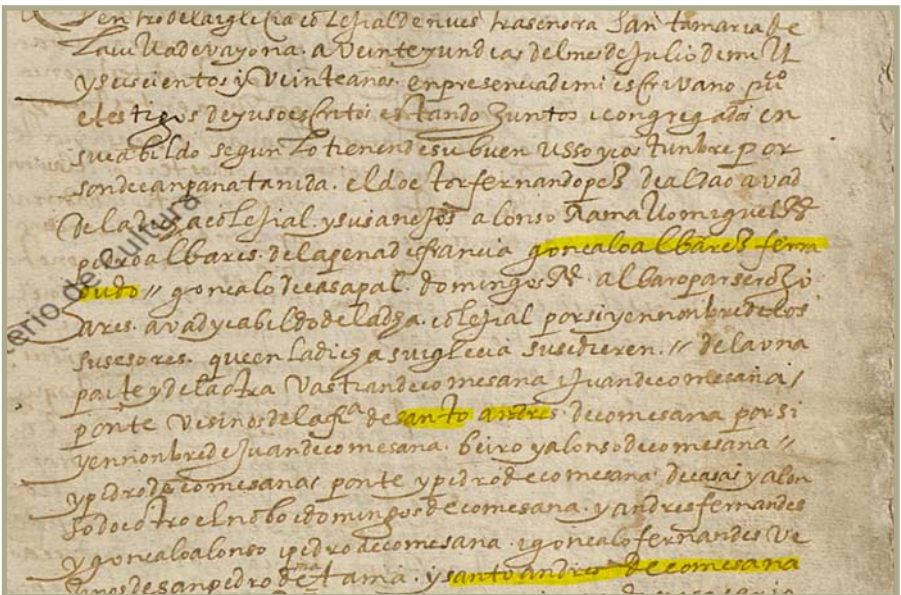 Dentro de la iglesia colesial de nuestra senora Santa maria de
La uilla de vayona a Veinte y un dias del mes de Julio de mill
y seiscientos y Veinte anos en presencia de mi escrivano puco
e testigos de yuso escritos estando Juntos e congregados en
su cabildo segun Lo tienen de su buen usso y costunbre por
son de canpana tanida el dotor fernando pez de aldao avad
de la dha colesial y su anejos alonso Ramallo miguel Rs
pedro albares de la pena de francia goncalo albares ferra
dudo // goncalo de casapal domingos Rs albaro par
ares avad y cabildo de la dha colesial por si y en nonbre de los
susesores que en La dicha su iglecia susedieren // de la vna
parte y de la otra Vastian de comesana e Juan de comesana
ponte Vesinos de la fra de santo andres de comesana por si
y en nonbre de Juan de comesana beiro y alonso de comesana //
y pedro de comesana ponte y pedro de comesana de casas y alon
so do outro el nobo e domingos de comesana y andres fernandes
y goncalo alonso e pedro de comesana e goncalo fernandes Ve
sinos de san pedro de matama y santo andres de comesana
erio de cultura